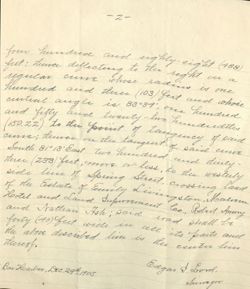 - 2 -
four hundred and eighty eight (488)
feet: thence deflecting to the right on a
regular curve whose radius is one
hundred and three (103) feet and whose
central angle is 83°37' one hundred
and fifty and twenty two hundredths
(150.22) to the point of tangency of said
curve; thence on the tangent of said curve
South 81°13' East two hundred and thirty
three (233) feet, more or less, to the westerly
side line of Spring Street crossing land
of the Estate of Emily Livingston,
Hotel and Land Improvement Co., Robert
and Nathan Ash; said road shall be
forty (40) feet wide in all its parts and
the above described line is the centre line
thereof.
Bar Harbor, Dec 29th 1905
Edgar I. Lord.
Surveyor